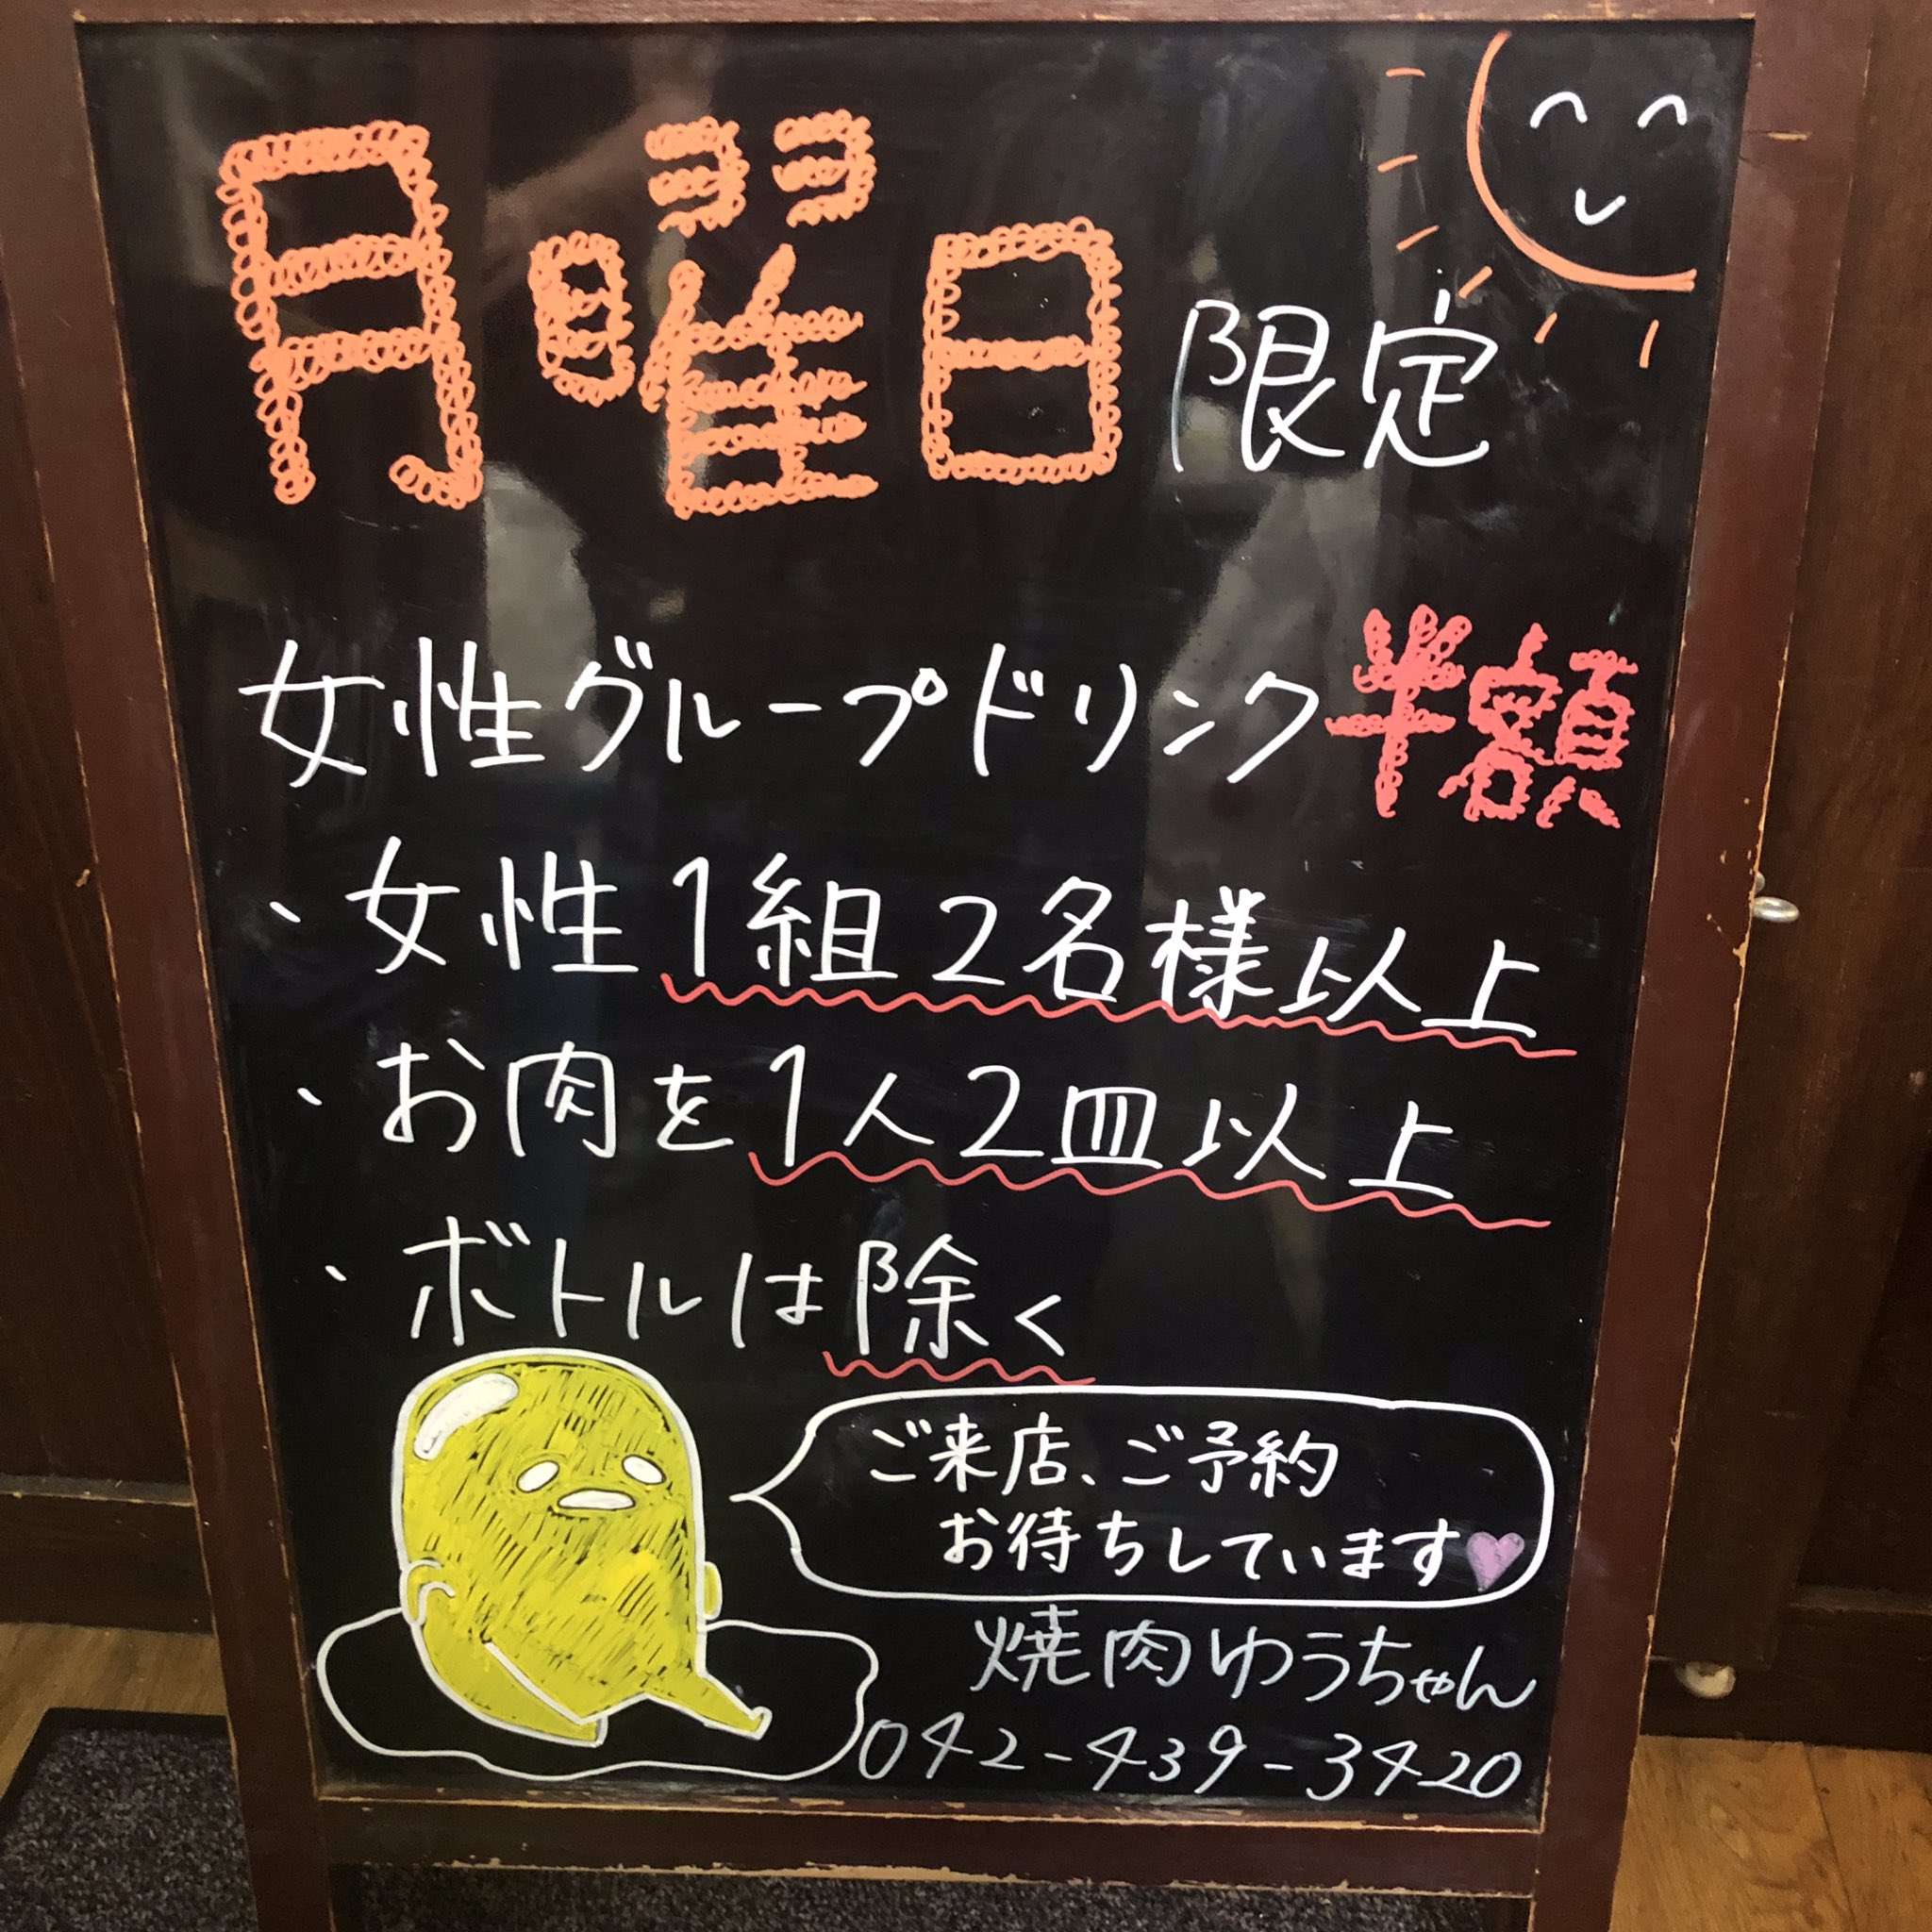 月曜日限定
女性グループドリンク半額
・女性1組2名様以上
・お肉を1人2皿以上
・ボトルは除く
ご来店、ご予約
お待ちしています♥
焼肉ゆうちゃん
042-439-3420